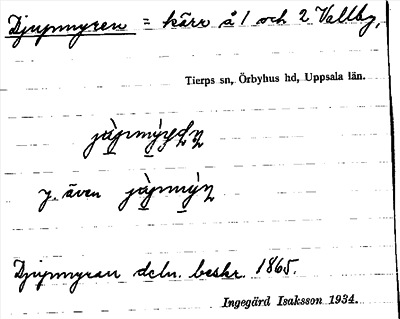 Djupmyren = kärr å 1 och 2 Vallby,
Tierps sn, Örbyhus hd, Uppsala län.
y. även
Djupmyran dcln. beskr. 1865.
Ingegärd Isaksson 1934.